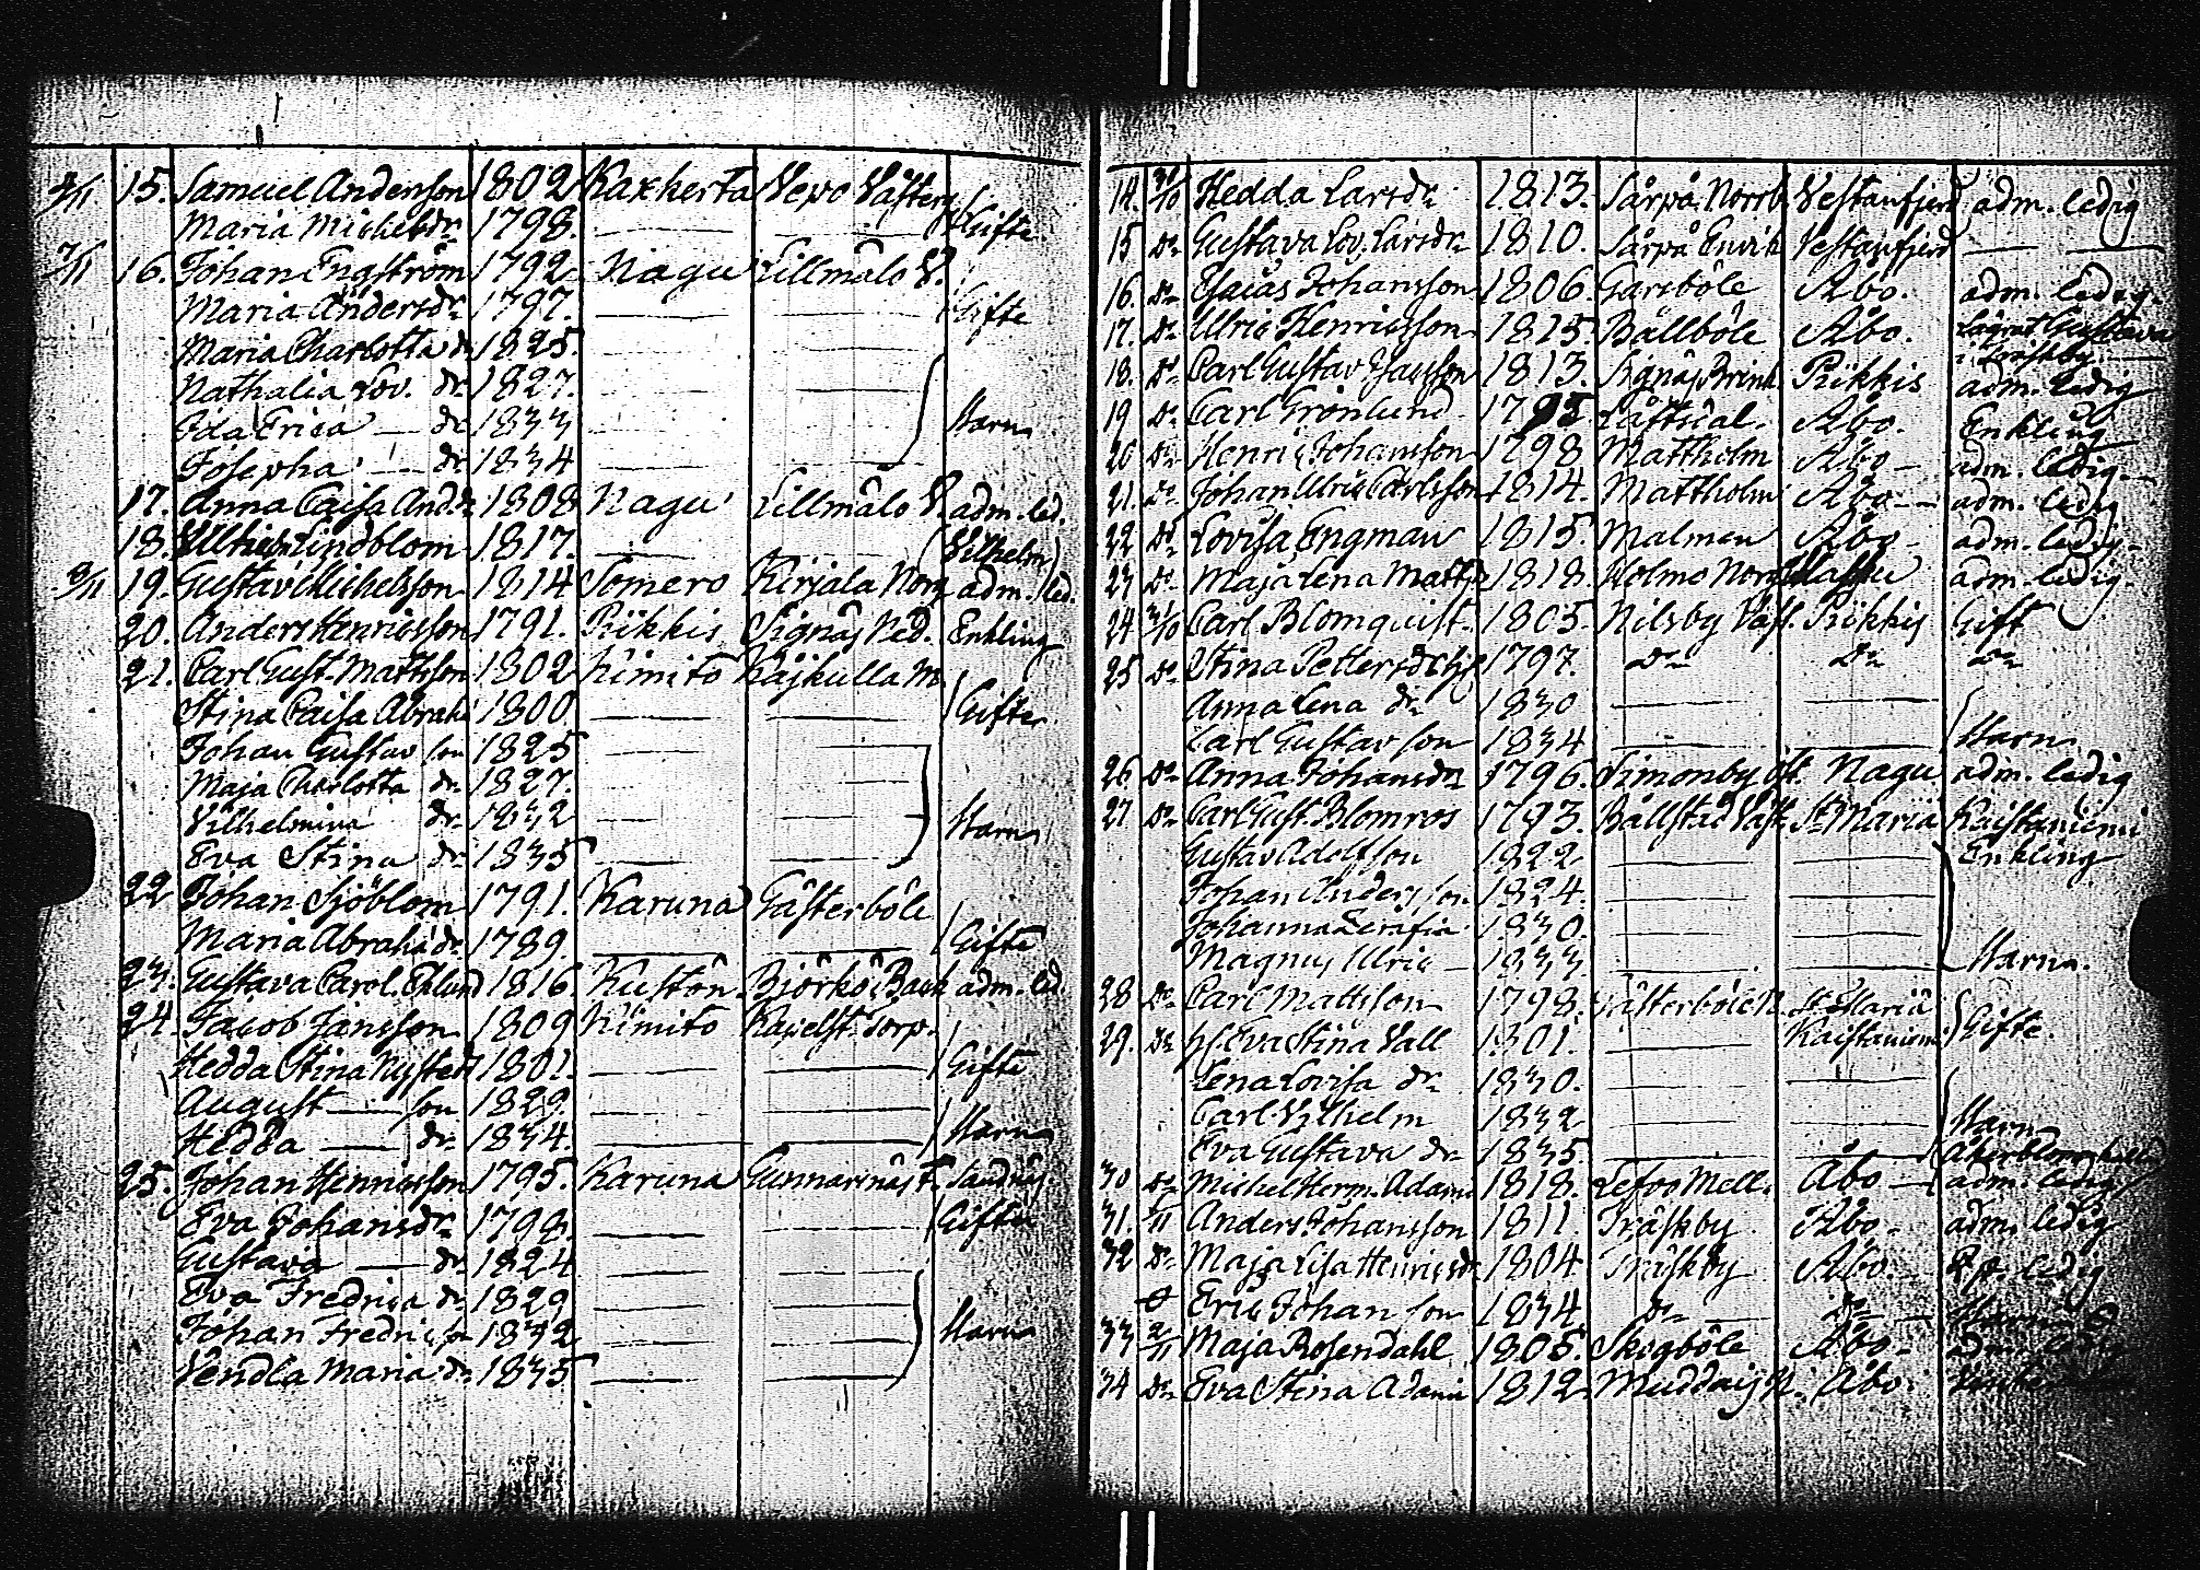 15. Samuel Andersson 1802 Kaxkerta Vepo Västerg
Maria Michelsdr 1798. Gifte
7/11 16. Johan Engström 1792 Nagu Lillmälo V.
Maria Andersdr 1797. Gifte
Maria Charlotta dr 1825
Nathalia Lov. dr 1827.
Ida Erica — dr 1833
Josepha — dr 1834 Barn
17. Anna Caisa And.dr 1808 Nagu Lillmälo V. adm. led.
18. Lindblom 1817. (Vilhelm)
8/11 19. Gustav Michelsson 1814 Somero Kirjala Norrg adm. led.
20. Anders Henricsson 1791. Piikkis Signäs Ned. Enkling
21. Carl Gust. Mattsson 1802 Kimito Käjkulla M
Stina Caisa Abrahd 1800. Gifte
Johan Gustav son 1825
Maja Charlotta dr 1827.
Vilhelmina dr 1832
Eva Stina dr 1835 Barn
22 Johan Sjöblom 1791. Karuna Gästerböle
Maria Abrahdr 1789. Gifte
23. Gustava Carol. Eklund 1816. Kustön Björkö Back adm. led.
24. Jacob Jansson 1809 Kimito Kapelst. Torp.
Hedda Stina Nystedt 1801. Gifte
August — son 1829.
Hedda — dr 1834. Barn
25. Johan Henricsson 1795. Karuna Gunnarsnäs T. Sandnäs.
Eva Johansdr 1798. Gifte
Gustava — dr 1824
Eva Fredrica dr 1829
Johan Fredric son 1832
Vendla Maria dr 1835 Barn
14. 31/10 Hedda Larsdr 1813. Särpä Norrb. Vestanfjerd adm. ledig
15 Do Gustava Lov. Larsdr 1810. Särpä Envik Vestanfjerd — —
16. Do Esaias Johansson 1806. Garsböle Åbo. adm. ledig.
17. Do Ulric Henricsson 1815. Bällböle Åbo.
18. Do Carl Gustav Isacsson 1813. Signäs Brink. Piikkis adm. ledig
19 Do Carl Grönlund 1795 Åbo. Enkling
20 Do Henric Johansson 1798 Mattholm Åbo — adm. ledig
21. Do Johan Ulric Carlsson 1814. Mattholm Åbo — adm. ledig
22 Do Lovisa Engman 1815. Malmen Åbo — adm. ledig.
23 Do Maja Lena Mattsdr 1818. Holmo Norrg adm. ledig.
24 31/10 Carl Blomquist. 1805. Nilsby Väst. Piikkis Gift
25 Do Stina Pettersdr 1797. Do Do Do
Anna Lena dr 1830
Carl Gustav son 1834 Barn
26 Do Anna Johansdr 1796. Simonby Öst. Nagu adm. ledig
27 Do Carl Gust. Blomros 1793. Bällstad Väst. St Maria Kaistaniemi
Gustav Adolf son 1822 Enkling
Johan Anders son 1824.
Johanna Serafia 1830.
Magnus Ulric — 1833 Barn.
28 Do Carl Mattsson 1798. Västerböle N. St Maria
29. Do h. Eva Stina Vall 1801. Kaistaniemi Gifte.
Lena Lovisa dr 1830.
Carl Vilhelm 1832
Eva Gustava dr 1835. Barn
30 Do Michel Herm. Adams 1818. Lefvo Mell. Åbo — adm. ledig
31. Anders Johansson 1811. Träskby Åbo — adm. ledig
32 Do Maja Lisa Henricsdr 1804 Träskby Åbo. ledig
Eric Johan son 1834 Do Do Barn
33 2/11 Maja Rosendahl 1805. Skogböle Åbo — adm. ledig
34 Do Eva Stina Adams 1812. Muddais N. Åbo.